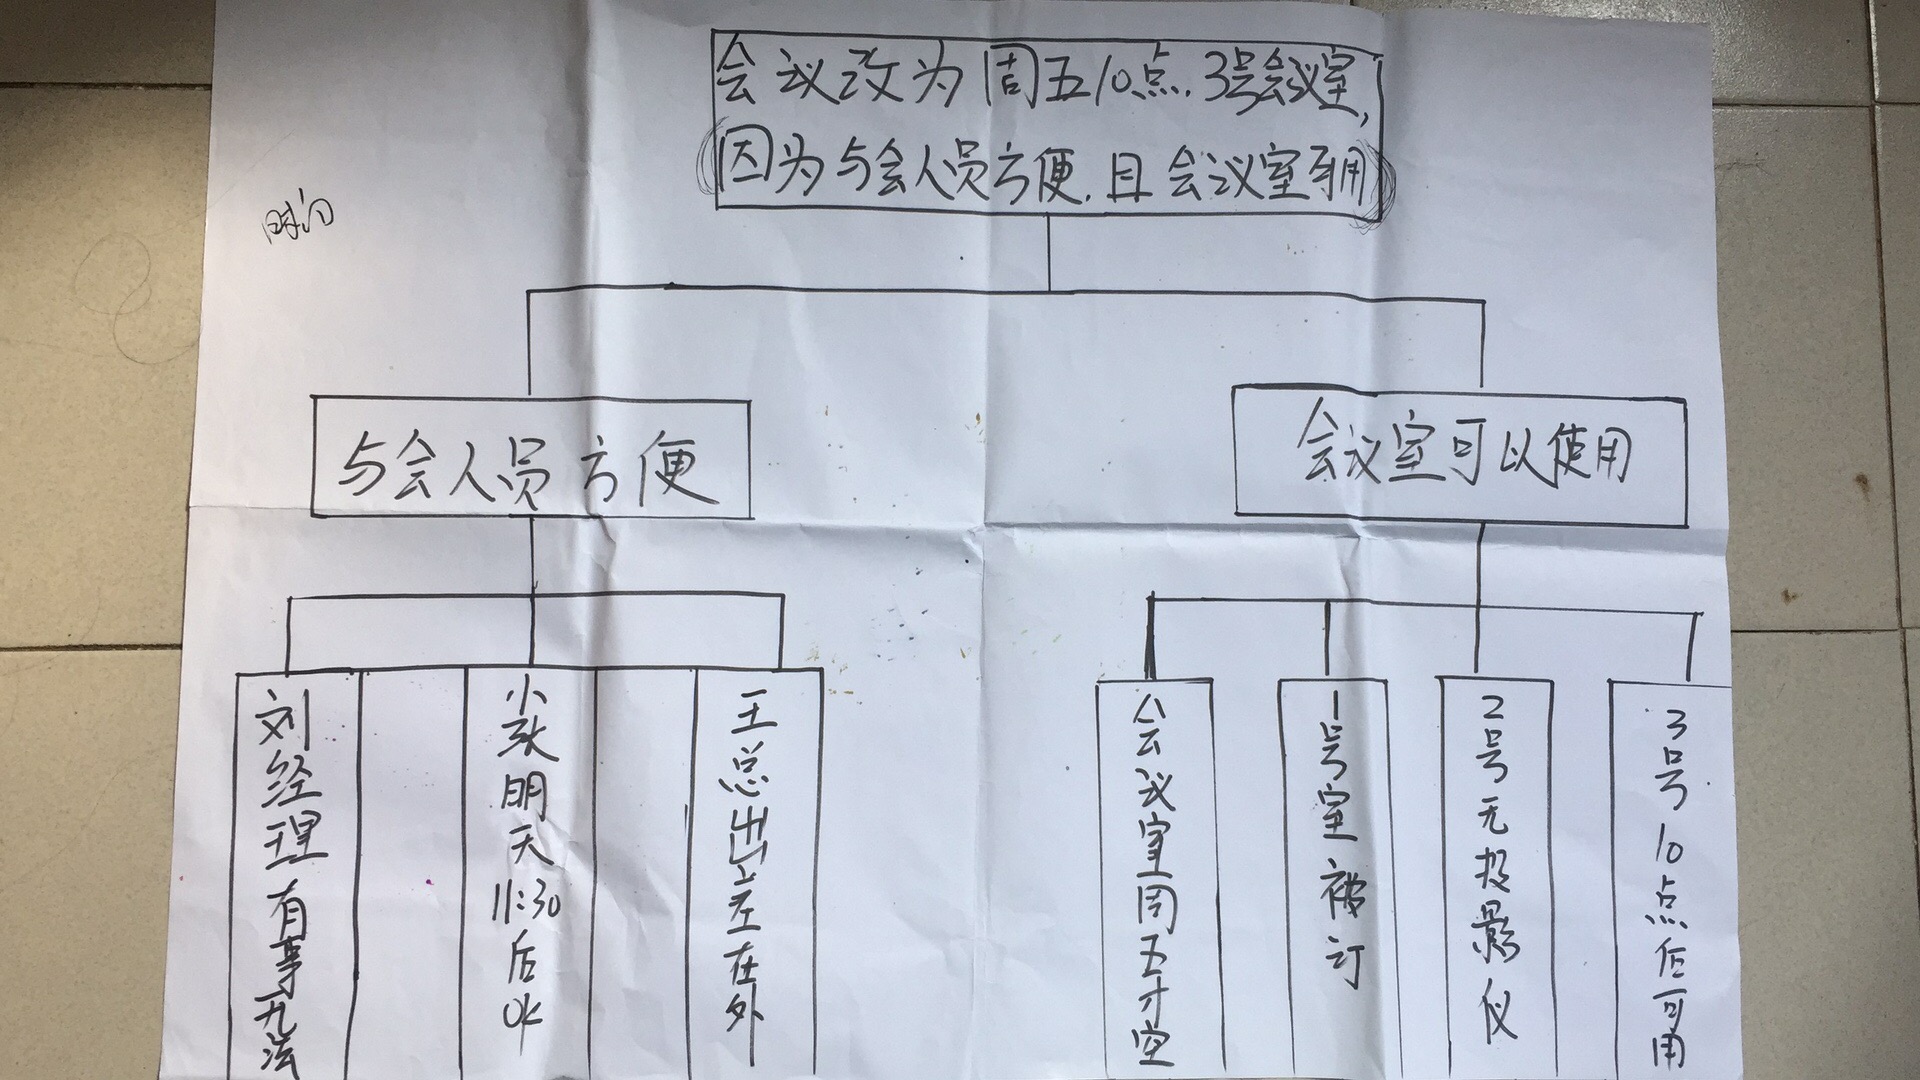 会议改为周五10点.3号会议室,
因为与会人员方便.且会议室可用
时间
与会人员方便
会议室可以使用
刘经理有事无法
小张明天11:30后OK
王总出差在外
会议室周五才空
1号室被订
2号无投影仪
3号10点后可用